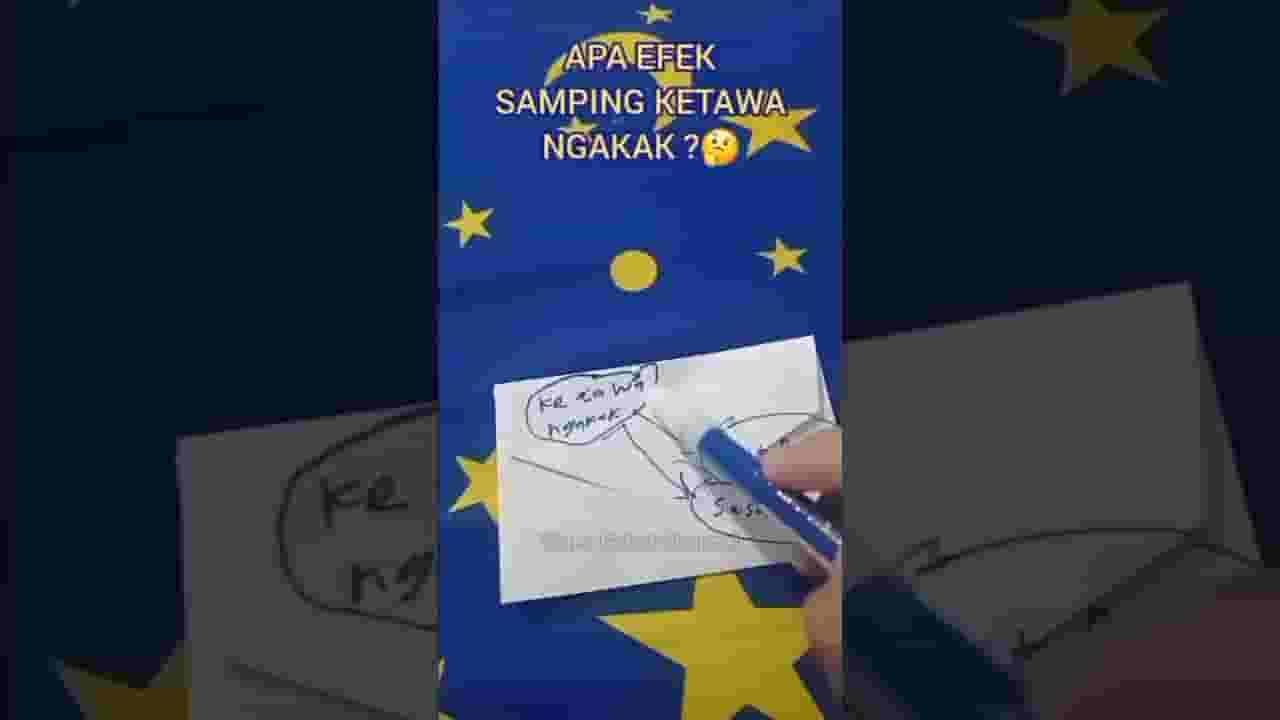 APA EFEK
SAMPING KETAWA
NGAKAK ?🤔
Ketawa
ngakak